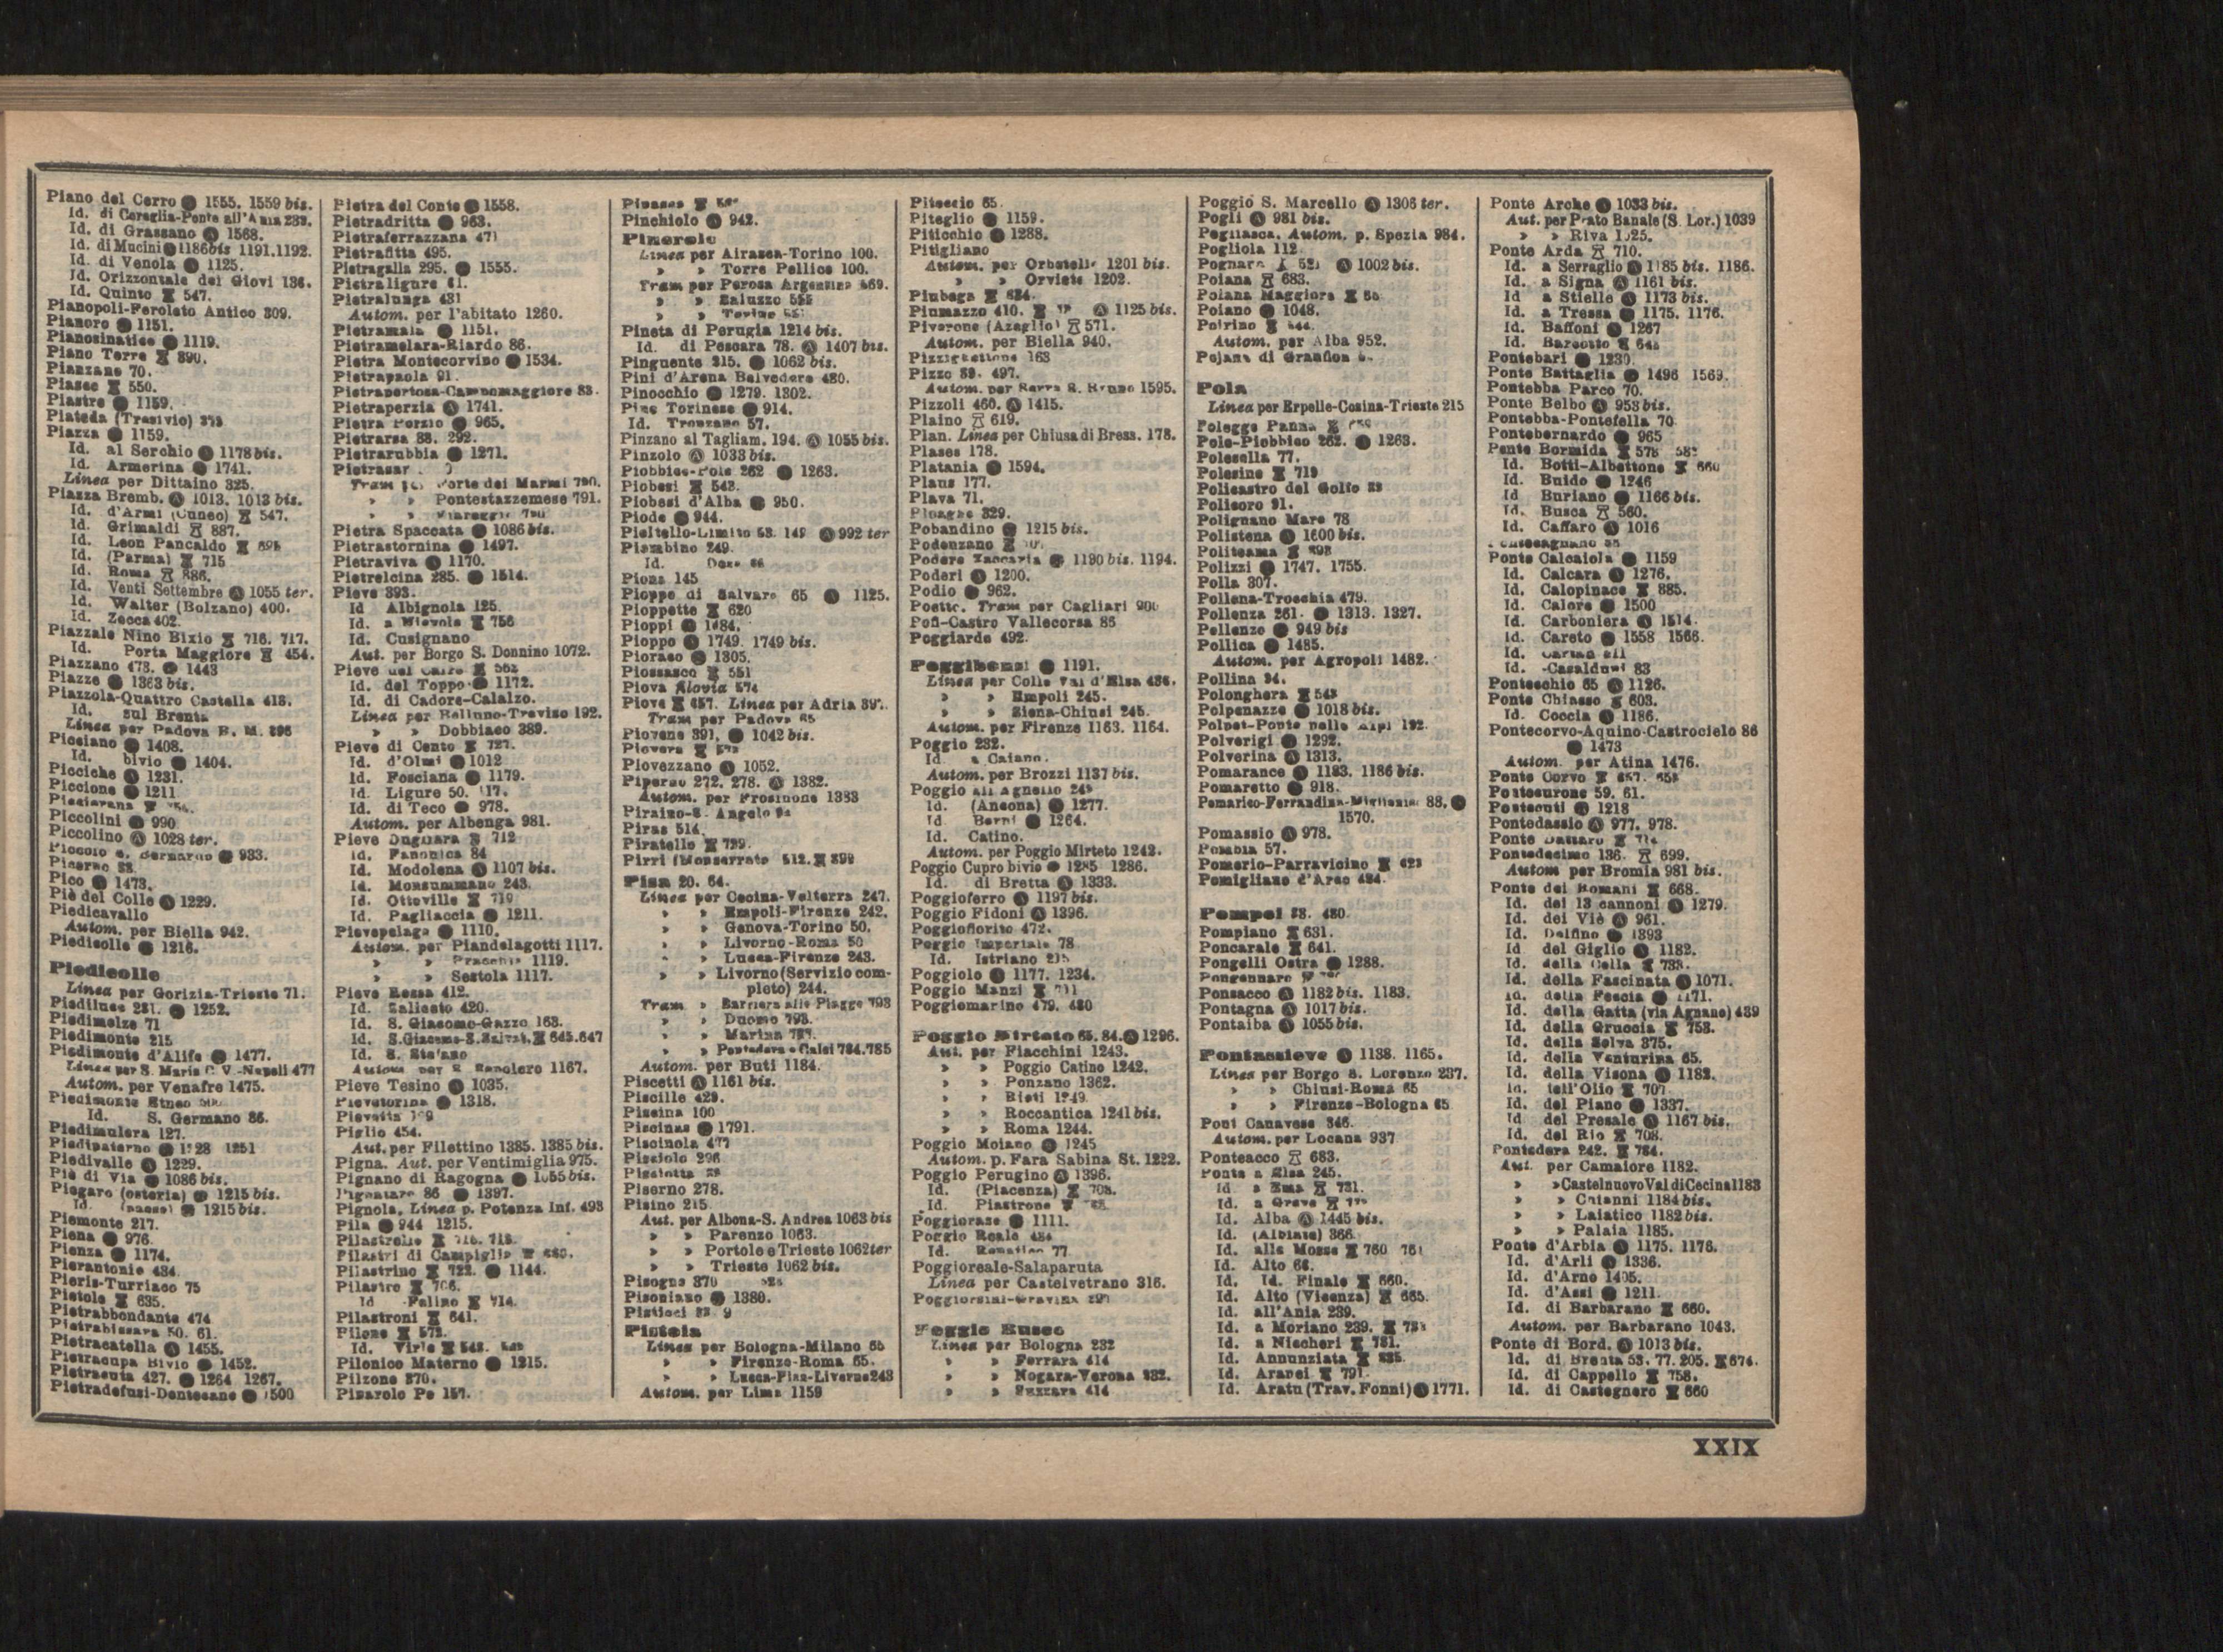 Piano del Cerro Ⓐ 1555. 1559 bis.
Id. di Coreglia-Ponte all'Ania 239.
Id. di Grassano Ⓐ 1568.
Id. di Mucini ● 1186 bis 1191. 1192.
Id. di Venola ● 1125.
Id. Orizzontale dei Giovi 136.
Id. Quinto 547.
Pianopoli-Feroleto Antico 309.
Pianoro ● 1151.
Pianosinatico ● 1119.
Piano Torre 890.
Pianzano 70.
Piasco 550.
Piastre ● 1159.
Piateda (Tresivio)
Piazza ● 1159.
Id. al Serchio ● 1178 bis.
Id. Armerina ● 1741.
Linea per Dittaino 325.
Piazza Bremb. Ⓐ 1013. 1013 bis.
Id. d'Armi (Cuneo) 547.
Id. Grimaldi 887.
Id. Leon Pancaldo
Id. (Parma) 715
Id. Roma 886.
Id. Venti Settembre Ⓐ 1055 ter.
Id. Walter (Bolzano) 400.
Id. Zecca 402.
Piazzale Nino Bixio 716. 717.
Id. Porta Maggiore 454.
Piazzano 478. ● 1443
Piazze ● 1363 bis.
Piazzola-Quattro Castella 413.
Id. sul Brenta
Linea per Padova B. M. 396
Picciano ● 1408.
Id. bivio ● 1404.
Picciche Ⓐ 1231.
Piccione ● 1211
Piccolini ● 990
Piccolino Ⓐ 1028 ter.
Piccolo S. Bernardo ● 933.
Picerno 88.
Pico ● 1473.
Piè del Colle Ⓐ 1229.
Piedicavallo
Autom. per Biella 942.
Piedicolle ● 1216.
Piedicolle
Linea per Gorizia-Trieste 71.
Piediluco 231. ● 1252.
Piedimelze 71
Piedimonte 215
Piedimonte d'Alife ● 1477.
Linea per S. Maria C. V.-Napoli 477
Autom. per Venafro 1475.
Piedimonte Etneo
Id. S. Germano 86.
Piedimulera 127.
Piedipaterno ● 1228 1251
Piedivalle Ⓐ 1229.
Piè di Via ● 1086 bis.
Piegaro (osteria) ● 1215 bis.
Id. (paese) ● 1215 bis.
Piemonte 217.
Piena ● 976.
Pienza ● 1174.
Pierantonio 434.
Pieris-Turriaco 75
Pietole 635.
Pietrabbondante 474
Pietrabissara 50. 61.
Pietracatella Ⓐ 1455.
Pietracupa Bivio ● 1452.
Pietracuta 427. ● 1264 1267.
Pietradefusi-Dentecane ● 1500
Pietra del Conte ● 1558.
Pietradritta ● 963.
Pietraferrazzana 471
Pietrafitta 495.
Pietragalla 295. ● 1555.
Pietraligure 61.
Pietralunga 431
Autom. per l'abitato 1260.
Pietramala ● 1151.
Pietramelara-Riardo 86.
Pietra Montecorvino ● 1534.
Pietrapaola 91.
Pietrapertosa-Campomaggiore 88.
Pietraperzia Ⓐ 1741.
Pietra Porzio ● 965.
Pietrarsa 88. 292.
Pietrarubbia ● 1271.
Tram per Forte dei Marmi 790.
» » Pontestazzemese 791.
» » Viareggio 790
Pietra Spaccata ● 1086 bis.
Pietrastornina ● 1497.
Pietraviva ● 1170.
Pietrelcina 285. ● 1514.
Pieve 393.
Id Albignola 125.
Id. a Nievole 756
Id. Cusignano
Aut. per Borgo S. Donnino 1072.
Pieve del Cairo
Id. del Toppo ● 1172.
Id. di Cadore-Calalzo.
Linea per Belluno-Treviso 192.
» » Dobbiaco 389.
Pieve di Cento 727.
Id. d'Olmi ● 1012
Id. Fosciana ● 1179.
Id. Ligure 50.
Id. di Teco ● 978.
Autom. per Albenga 981.
Pieve Dugliara 712
Id. Fanonica 84
Id. Modolena Ⓐ 1107 bis.
Id. Monsummano 243.
Id. Ottoville 719
Id. Pagliaccia ● 1211.
Pievepelago ● 1110.
Autom. per Piandelagotti 1117.
» » Pracchia 1119.
» » Sestola 1117.
Pieve Rossa 412.
Id. Saliceto 420.
Id. S. Giacomo-Gazzo 163.
Id. S. Giacomo-S. Salvat. 645. 647
Id. S. Stefano
Autom per S. Sepolcro 1167.
Pieve Tesino Ⓐ 1035.
Pievetorina ● 1318.
Pievetta
Piglio 454.
Aut. per Filettino 1385. 1385 bis.
Pigna. Aut. per Ventimiglia 975.
Pignano di Ragogna ● 1055 bis.
Pignataro 86 ● 1397.
Pignola. Linea p. Potenza Inf. 493
Pila ● 944 1215.
Pilastrello 716. 718.
Pilastri di Campiglio
Pilastrino 722. ● 1144.
Pilastro 706.
Id Felino 714.
Pilastroni 641.
Pilone 573.
Id. Virle 548.
Pilonico Materno ● 1215.
Pilzone 370.
Pinarolo Po 157.
Pinasca
Pinchiolo Ⓐ 942.
Pinerolo
Linea per Airasca-Torino 100.
» » Torre Pellice 100.
Tram per Perosa Argentina 569.
» » Saluzzo 555
» » Torino
Pineta di Perugia 1214 bis.
Id. di Pescara 78. Ⓐ 1407 bis.
Pinguente 215. ● 1062 bis.
Pini d'Arena Belvedere 480.
Pinocchio ● 1279. 1302.
Pino Torinese ● 914.
Id. Tronzano 57.
Pinzano al Tagliam. 194. Ⓐ 1055 bis.
Pinzolo Ⓐ 1033 bis.
Piobbico-Pole 262 ● 1263.
Piobesi 543.
Piobesi d'Alba ● 950.
Piode ● 944.
Pioltello-Limito 53. 149 Ⓐ 992 ter
Piombino 249.
Id. Dese 66
Piona 145
Pioppe di Salvaro 65 Ⓐ 1125.
Pioppette 620
Pioppi ● 1484.
Pioppo ● 1749. 1749 bis.
Pioraco ● 1305.
Piossasco 551
Piova Alovia 574
Piove 657. Linea per Adria
Tram per Padova 65
Piovene 391. ● 1042 bis.
Piovera
Piovezzano Ⓐ 1052.
Piperno 272. 278. Ⓐ 1382.
Autom. per Frosinone 1383
Piraino-S. Angelo 94
Piras 514.
Piratello 729.
Pirri (Monserrato 512. 899
Pisa 20. 64.
Linea per Cecina-Volterra 247.
» » Empoli-Firenze 242.
» » Genova-Torino 50.
» » Livorno-Roma 50
» » Lucca-Firenze 243.
» » Livorno (Servizio com-
pleto) 244.
Tram » Barriera alle Piagge 793
» » Duomo 793.
» » Marina
» » Pontedera e Calci 784. 785
Autom. per Buti 1184.
Piscetti Ⓐ 1161 bis.
Piscille 429.
Piscina 100
Piscinas ● 1791.
Piscinola 477
Pisciolo 296
Pisciotta 88
Piserno 278.
Pisino 215.
Aut. per Albona-S. Andrea 1063 bis
» » Parenzo 1063.
» » Portole e Trieste 1062 ter
» » Trieste 1062 bis.
Pisogne 370
Pisoniano ● 1380.
Pisticci 88 9
Pistoia
Linea per Bologna-Milano 65
» » Firenze-Roma 65.
» » Lucca-Pisa-Livorno 243
Autom. per Lima 1159
Piteccio 65.
Piteglio ● 1159.
Piticchio ● 1288.
Pitigliano
Autom. per Orbetello 1201 bis.
» » Orvieto 1202.
Piubega 634.
Piumazzo 410. Ⓐ 1125 bis.
Piverone (Azeglio) 571.
Autom. per Biella 940.
Pizzighettone 163
Pizzo 89. 497.
Autom. per Serra S. Bruno 1595.
Pizzoli 460. Ⓐ 1415.
Plaino 619.
Plan. Linea per Chiusa di Bress. 178.
Plases 178.
Platania ● 1594.
Plaus 177.
Plava 71.
Ploaghe 329.
Pobandino ● 1215 bis.
Podenzano
Podere Zaccaria ● 1190 bis. 1194.
Poderi Ⓐ 1200.
Podio ● 962.
Poetto. Tram per Cagliari 900
Pofi-Castro Vallecorsa 86
Poggiardo 492.
Poggibonsi ● 1191.
Linea per Colle Val d'Elsa 436.
» » Empoli 245.
» » Siena-Chiusi 245.
Autom. per Firenze 1163. 1164.
Poggio 232.
Id a Caiano.
Autom. per Brozzi 1137 bis.
Poggio all'Agnello 249
Id. (Ancona) ● 1277.
Id Berni ● 1264.
Id. Catino.
Autom. per Poggio Mirteto 1242.
Poggio Cupro bivio ● 1285 1286.
Id. di Bretta Ⓐ 1333.
Poggioferro Ⓐ 1197 bis.
Poggio Fidoni Ⓐ 1396.
Poggiofiorito 472.
Poggio Imperiale 78
Id. Istriano 215
Poggiolo ● 1177. 1234.
Poggio Manzi
Poggiomarino 479. 480
Poggio Mirteto 65. 84. Ⓐ 1296.
Aut. per Fiacchini 1243.
» » Poggio Catino 1242.
» » Ponzano 1362.
» » Rieti 1249.
» » Roccantica 1241 bis.
» » Roma 1244.
Poggio Moiano ● 1245
Autom. p. Fara Sabina St. 1222.
Poggio Perugino Ⓐ 1396.
Id. (Piacenza) 708.
Id. Piastrone
Poggiorase ● 1111.
Poggio Reale 484
Id. Renatico 77
Poggioreale-Salaparuta
Linea per Castelvetrano 316.
Poggiorsini-Gravina 297
Poggio Rusco
Linea per Bologna 232
» » Ferrara 414
» » Nogara-Verona 232.
» » Suzzara 414
Poggio S. Marcello Ⓐ 1306 ter.
Pogli Ⓐ 981 bis.
Pegliasca. Autom. p. Spezia 984.
Pogliola 112.
Pognara Ⓐ 1002 bis.
Poiana 683.
Poiana Maggiore
Poiano ● 1048.
Poirino
Autom. per Alba 952.
Pojana di Granfion
Pola
Linea per Erpelle-Cosina-Trieste 215
Polegge Panna
Pole-Piobbico 262. ● 1263.
Polesella 77.
Polesine 719
Policastro del Golfo 88
Policoro 91.
Polignano Mare 78
Polistena Ⓐ 1600 bis.
Politeama 898
Polizzi ● 1747. 1755.
Polla 307.
Pollena-Trocchia 479.
Pollenza 261. ● 1313. 1327.
Pollenzo ● 949 bis
Pollica ● 1485.
Autom. per Agropoli 1482.
Pollina 94.
Polonghera 543
Polpenazze ● 1018 bis.
Polpet-Ponte nelle Alpi 192.
Polverigi ● 1292.
Polverina Ⓐ 1313.
Pomarance ● 1183. 1186 bis.
Pomaretto ● 918.
Pomarico-Ferrandina-Miglionico 88. ●
1570.
Pomassio Ⓐ 978.
Pombia 57.
Pomerio-Parravicino 623
Pomigliano d'Arco 484.
Pompei 88. 480.
Pompiano 631.
Poncarale 641.
Pongelli Ostra ● 1288.
Pongennaro
Ponsacco Ⓐ 1182 bis. 1183.
Pontagna Ⓐ 1017 bis.
Pontaiba Ⓐ 1055 bis.
Pontassieve Ⓐ 1138. 1165.
Linea per Borgo S. Lorenzo 237.
» » Chiusi-Roma 65
» » Firenze-Bologna 65
Pont Canavese 346.
Autom. per Locana 937
Ponteacco 683.
Ponte a Elsa 245.
Id a Ema 781.
Id. a Greve
Id. Alba Ⓐ 1445 bis.
Id. (Albiate) 366.
Id. alla Mosse 760 761
Id. Alto 66.
Id. Id. Finale 660.
Id. Alto (Vicenza) 665.
Id. all'Ania 239.
Id. a Moriano 239.
Id. a Niccheri 781.
Id. Annunziata 885.
Id. Aranci 791
Id. Aratu (Trav. Fonni) ● 1771.
Ponte Arche Ⓐ 1033 bis.
Aut. per Prato Banale (S. Lor.) 1039
» » Riva 1025.
Ponte Arda 710.
Id. a Serraglio Ⓐ 1185 bis. 1186.
Id. a Signa Ⓐ 1161 bis.
Id a Stielle Ⓐ 1173 bis.
Id. a Tressa ● 1175. 1176.
Id. Baffoni ● 1267
Id. Barcotto
Pontebari ● 1230.
Ponte Battaglia ● 1496 1569.
Pontebba Parco 70.
Ponte Belbo Ⓐ 953 bis.
Pontebba-Pontefella 70
Pontebernardo ● 965
Ponte Bormida 578 582
Id. Botti-Albettone 660
Id. Buido ● 1246
Id Buriano ● 1166 bis.
Id. Busca 560.
Id. Caffaro Ⓐ 1016
Pontecagnano 88
Ponte Calcaiola ● 1159
Id. Calcara Ⓐ 1276.
Id. Calopinace 885.
Id. Calore ● 1500
Id. Carboniera Ⓐ 1514.
Id. Careto ● 1558 1566.
Id. Casalduni 83
Pontecchio 65 Ⓐ 1126.
Ponte Chiasso 603.
Id. Coccia ● 1186.
Pontecorvo-Aquino-Castrocielo 86
● 1473
Autom. per Atina 1476.
Ponte Corvo 657. 658
Pontecurone 59. 61.
Pontecuti ● 1218
Pontedassio Ⓐ 977. 978.
Ponte Dattaro
Pontedecimo 136. 699.
Autom per Bromia 981 bis.
Ponte dei Romani 668.
Id. dei 13 cannoni Ⓐ 1279.
Id. dei Viè Ⓐ 961.
Id. Delfino ● 1393
Id del Giglio Ⓐ 1182.
Id. della Cella 733.
Id. della Fascinata Ⓐ 1071.
Id. della Pescia ● 1171.
Id. della Gatta (via Agnano) 439
Id. della Gruccia 758.
Id. della Selva 375.
Id. della Venturina 65.
Id. della Visona Ⓐ 1182.
Id. dell'Olio 707.
Id. del Piano ● 1337.
Id del Presale Ⓐ 1167 bis.
Id. del Rio 708.
Pontedera 242. 784.
Aut. per Camaiore 1182.
» » Castelnuovo Val di Cecina 1183
» » Chianni 1184 bis.
» » Laiatico 1182 bis.
» » Palaia 1185.
Ponte d'Arbia Ⓐ 1175. 1176.
Id. d'Arli Ⓐ 1336.
Id. d'Arno 1405.
Id. d'Assi ● 1211.
Id. di Barbarano 660.
Autom. per Barbarano 1043.
Ponte di Bord. Ⓐ 1013 bis.
Id. di Brenta 53. 77. 205. 674.
Id. di Cappello 758.
Id. di Castegnero 660
XXIX